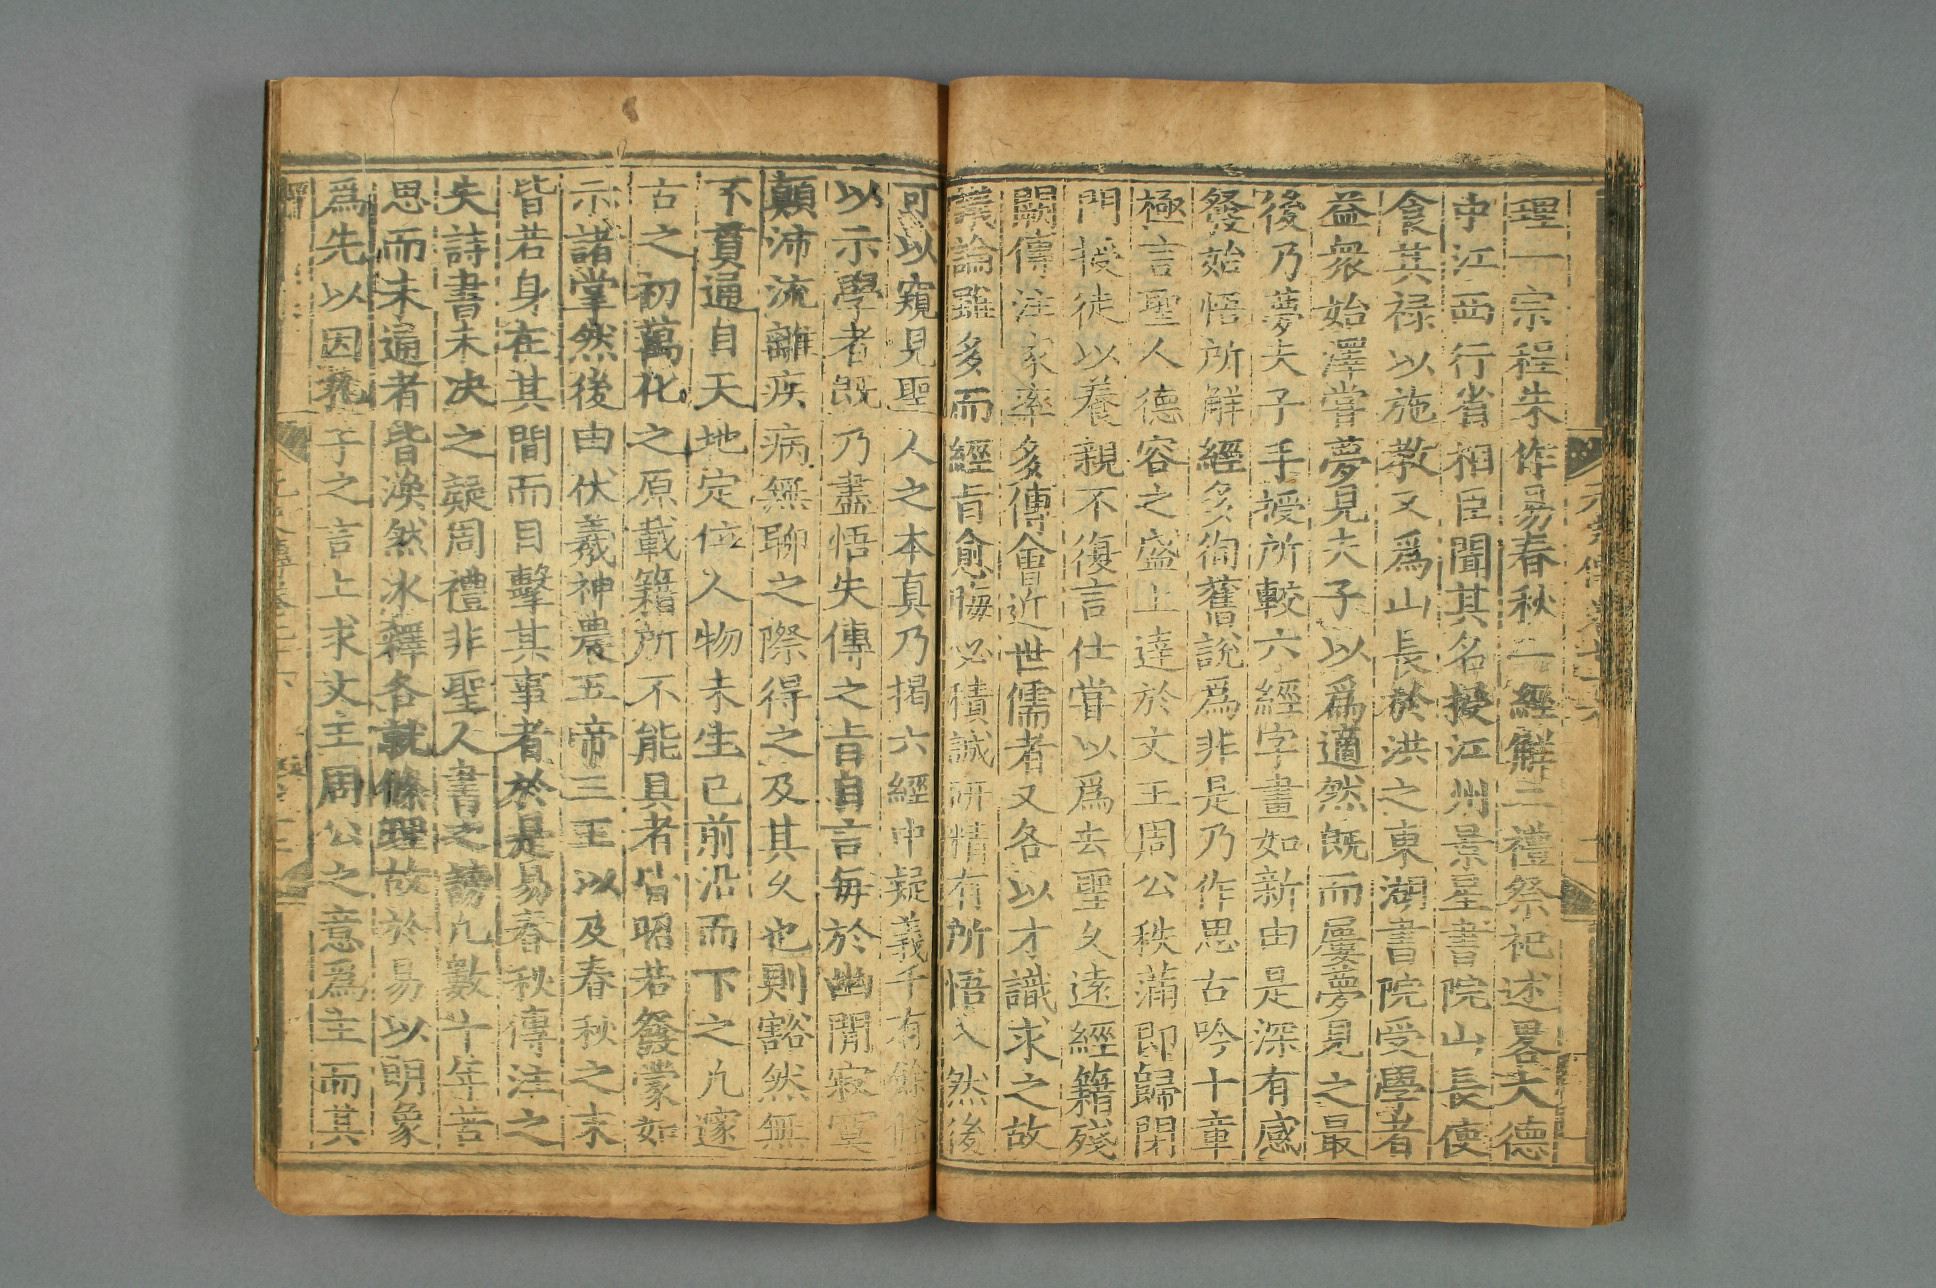 理一宗程朱作易春秋二經解二禮祭祀述畧大德
中江西行省相臣聞其名授江州景星書院山長使
食其祿以施教又爲山長於洪之東湖書院受學者
益衆始澤嘗夢見夫子以爲適然既而屢夢見之最
後乃夢夫子手授所較六經字畫如新由是深有感
發始悟所解經多徇舊說爲非是乃作思古吟十章
極言聖人德容之盛上達於文王周公秩滿即歸閉
門授徒以養親不復言仕嘗以爲去聖久遠經籍殘
闕傳注家率多傳會近世儒者又各以才識求之故
議論雖多而經旨愈晦必積誠研精有所悟入然後
可以窺見聖人之本真乃揭六經中疑義千有餘條
以示學者既乃盡悟失傳之旨自言每於幽閒寂寞
顛沛流離疾病無聊之際得之及其久也則豁然無
不貫通自天地定位人物未生已前沿而下之凡邃
古之初萬化之原載籍所不能具者皆昭若發蒙如
示諸掌然後由伏羲神農五帝三王以及春秋之末
皆若身在其間而目擊其事者於是易春秋傳注之
失詩書未決之疑周禮非聖人書之謗凡數十年苦
思而未通者皆渙然冰釋各就條理故於易以明象
爲先以因孔子之言上求文王周公之意爲主而其